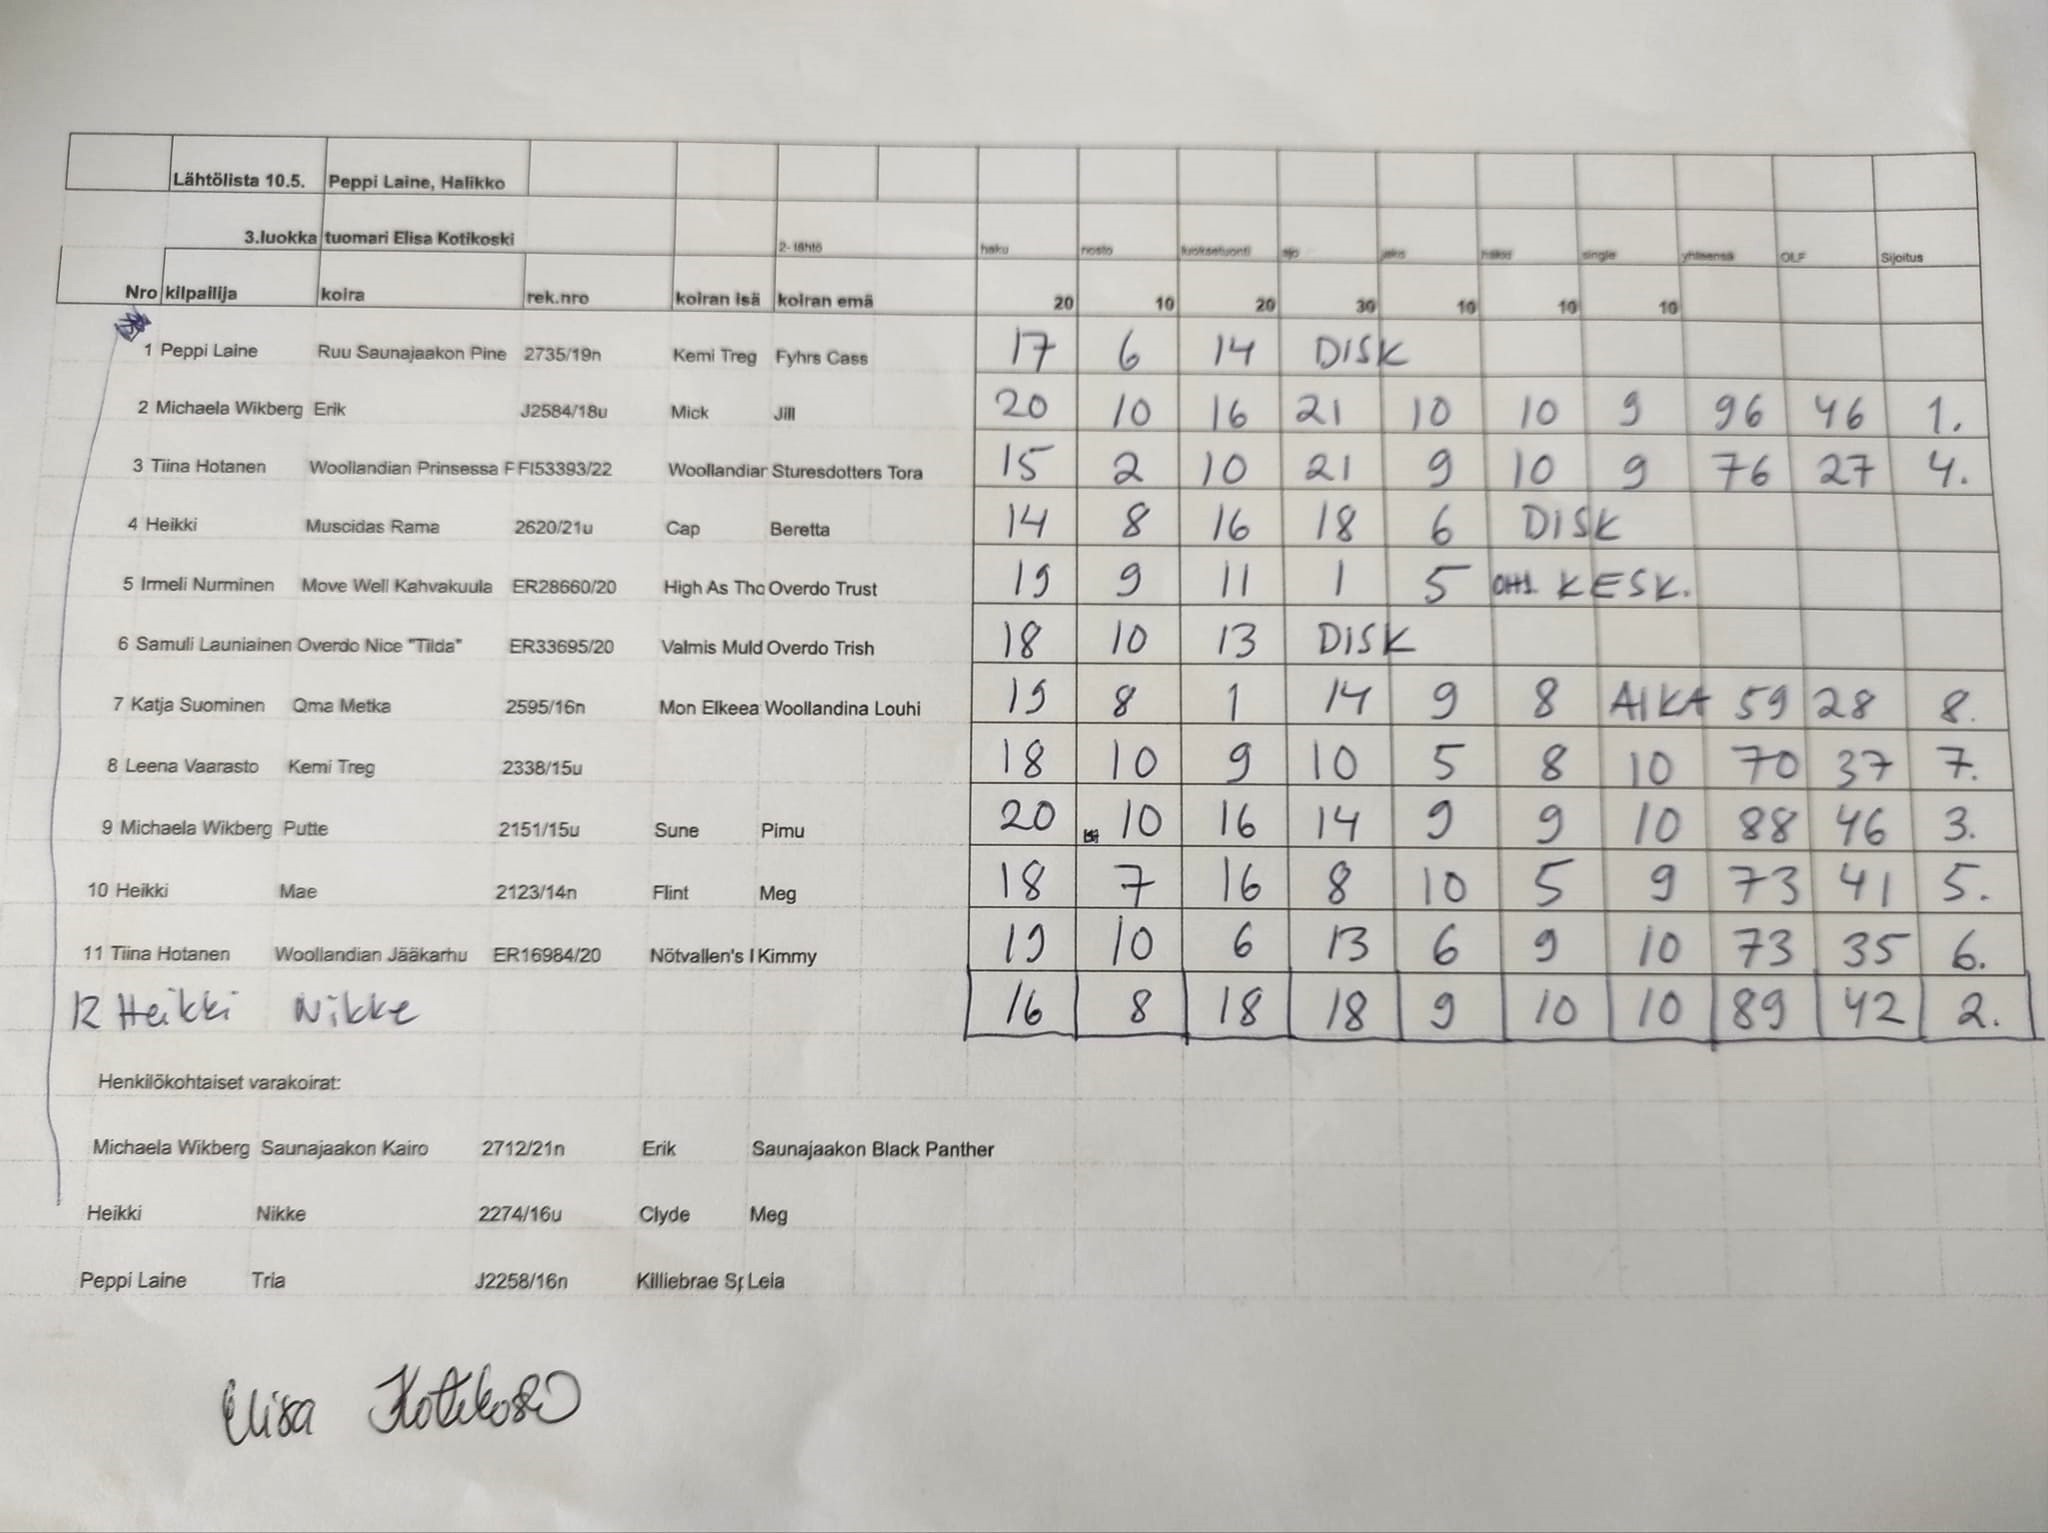 Lähtölista 10.5. Peppi Laine, Halikko
3.luokka tuomari Elisa Kotikoski 2- lähtö haku nosto luoksetuonti ajo jako häkki single yhteensä OLF Sijoitus
Nro kilpailija koira rek.nro koiran isä koiran emä 20 10 20 30 10 10 10
1 Peppi Laine Ruu Saunajaakon Pine 2735/19n Kemi Treg Fyhrs Cass 17 6 14 DISK
2 Michaela Wikberg Erik J2584/18u Mick Jill 20 10 16 21 10 10 9 96 46 1.
3 Tiina Hotanen Woollandian Prinsessa F FI53393/22 Woollandiar Sturesdotters Tora 15 2 10 21 9 10 9 76 27 4.
4 Heikki Muscidas Rama 2620/21u Cap Beretta 14 8 16 18 6 DISK
5 Irmeli Nurminen Move Well Kahvakuula ER28660/20 High As Tho Overdo Trust 19 9 11 1 5 OHJ. KESK.
6 Samuli Launiainen Overdo Nice "Tilda" ER33695/20 Valmis Muld Overdo Trish 18 10 13 DISK
7 Katja Suominen Qma Metka 2595/16n Mon Elkeea Woollandina Louhi 19 8 1 14 9 8 AIKA 59 28 8.
8 Leena Vaarasto Kemi Treg 2338/15u 18 10 9 10 5 8 10 70 37 7.
9 Michaela Wikberg Putte 2151/15u Sune Pimu 20 10 16 14 9 9 10 88 46 3.
10 Heikki Mae 2123/14n Flint Meg 18 7 16 8 10 5 9 73 41 5.
11 Tiina Hotanen Woollandian Jääkarhu ER16984/20 Nötvallen's I Kimmy 19 10 6 13 6 9 10 73 35 6.
12 Heikki Nikke 16 8 18 18 9 10 10 89 42 2.
Henkilökohtaiset varakoirat:
Michaela Wikberg Saunajaakon Kairo 2712/21n Erik Saunajaakon Black Panther
Heikki Nikke 2274/16u Clyde Meg
Peppi Laine Tria J2258/16n Killiebrae Sp Leia
Elisa Kotikoski